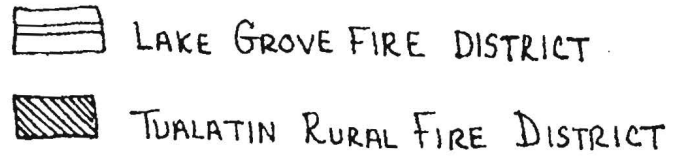 LAKE GROVE FIRE DISTRICT
TUALATIN RURAL FIRE DISTRICT